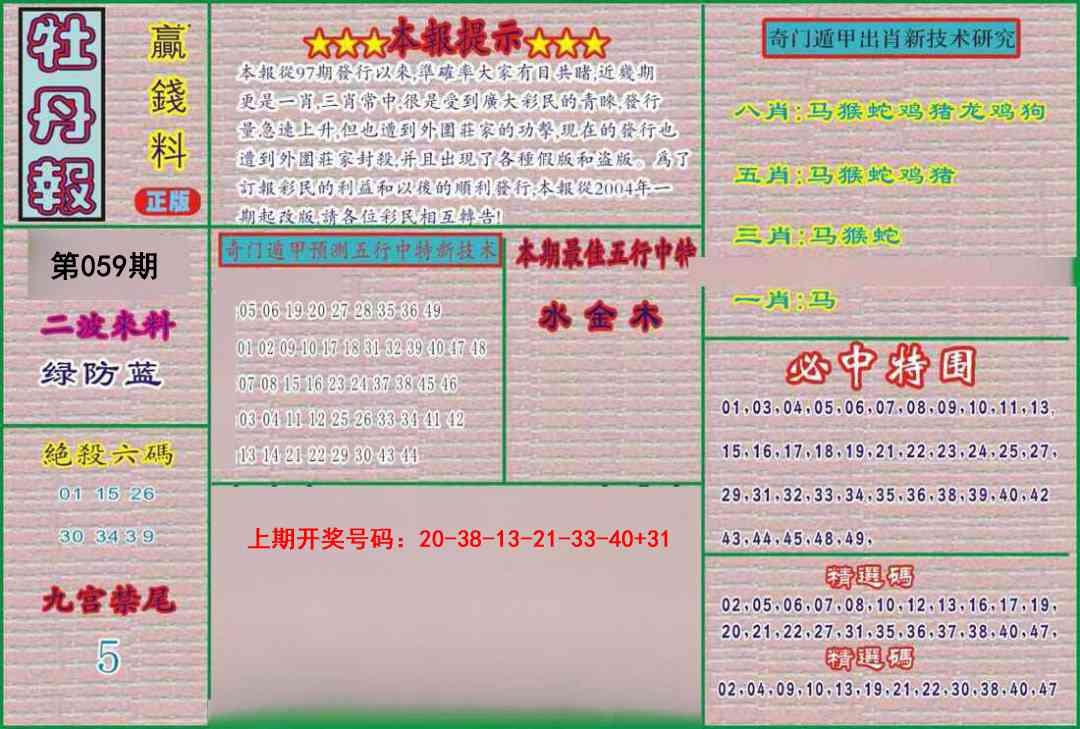 牡丹報
贏錢料
正版
第059期
二波來料
绿防蓝
絕殺六碼
01 15 26
30 34 3 9
九宫禁尾
5
★★★本報提示★★★
本報從97期發行以來,準確率大家有目共睹,近幾期
更是一肖,三肖常中,很是受到廣大彩民的青睞,發行
量急速上升,但也遭到外圍莊家的功擊,現在的發行也
遭到外圍莊家封殺,并且出現了各種假版和盗版。爲了
訂報彩民的利益和以後的順利發行,本報從2004年一
期起改版,請各位彩民相互轉告!
奇门遁甲预测五行中特新技术
05 06 19 20 27 28 35 36 49
01 02 09 10 17 18 31 32 39 40 47 48
07 08 15 16 23 24 37 38 45 46
03 04 11 12 25 26 33 34 41 42
13 14 21 22 29 30 43 44
本期最佳五行中特
水 金 木
上期开奖号码：20-38-13-21-33-40+31
奇门遁甲出肖新技术研究
八肖:马猴蛇鸡猪龙鸡狗
五肖:马猴蛇鸡猪
三肖:马猴蛇
一肖:马
必中特围
01,03,04,05,06,07,08,09,10,11,13,
15,16,17,18,19,21,22,23,24,25,27,
29,31,32,33,34,35,36,38,39,40,42
43,44,45,48,49,
精選碼
02,05,06,07,08,10,12,13,16,17,19,
20,21,22,27,31,35,36,37,38,40,47,
精選碼
02,04,09,10,13,19,21,22,30,38,40,47